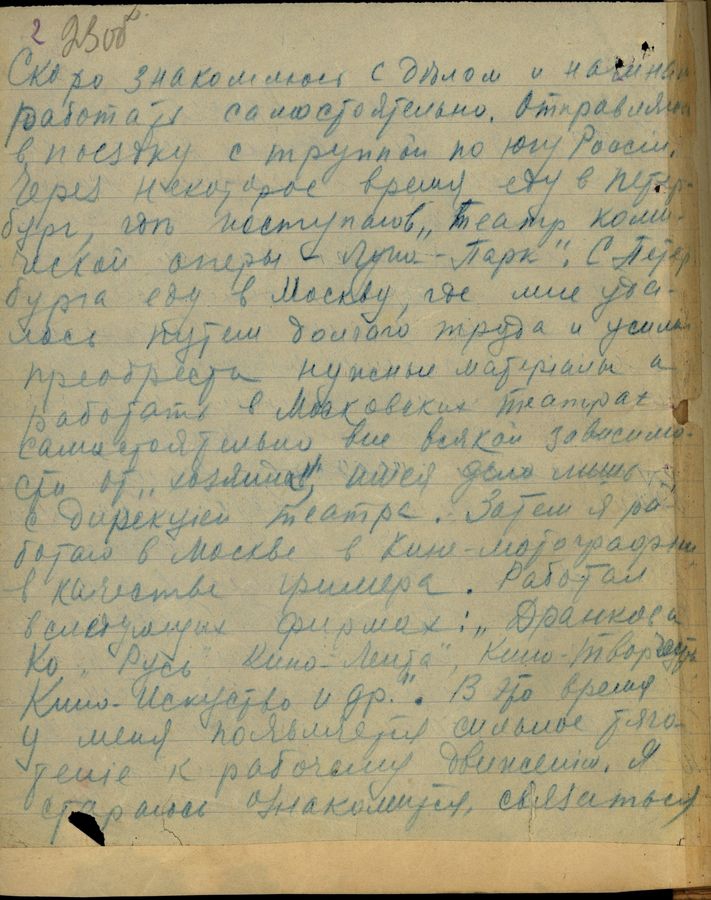 2 23 об
Скоро знакомлюсь с дѣлом и начинаю
работать самостоятельно. Отправляюсь
в поездку с труппой по югу Россіи.
Через некоторое время еду в Петер-
бург, гдѣ поступаю в „Театр коми-
ческой оперы – Луна-Парк". С Петер
бурга еду в Москву, где мне уда-
лось путем долгаго труда и усилий
преобрести нужные матеріалы и
работать в Московских театрах
самостоятельно вне всякой зависимо-
сти от „хозяина", имея дело лишь
с дирекцией театра. Затем я ра-
ботаю в Москве в Кине-мотографии
в качестве гримера. Работал
в следующих фирмах: „Дранков и
Ко", Русь" Кино-Лента", Кино-Творчество
Кино-Искуство и др.". В это время
у меня появляется сильное тяго-
теніе к рабочему движенію. Я
стараюсь ознакомится, связаться